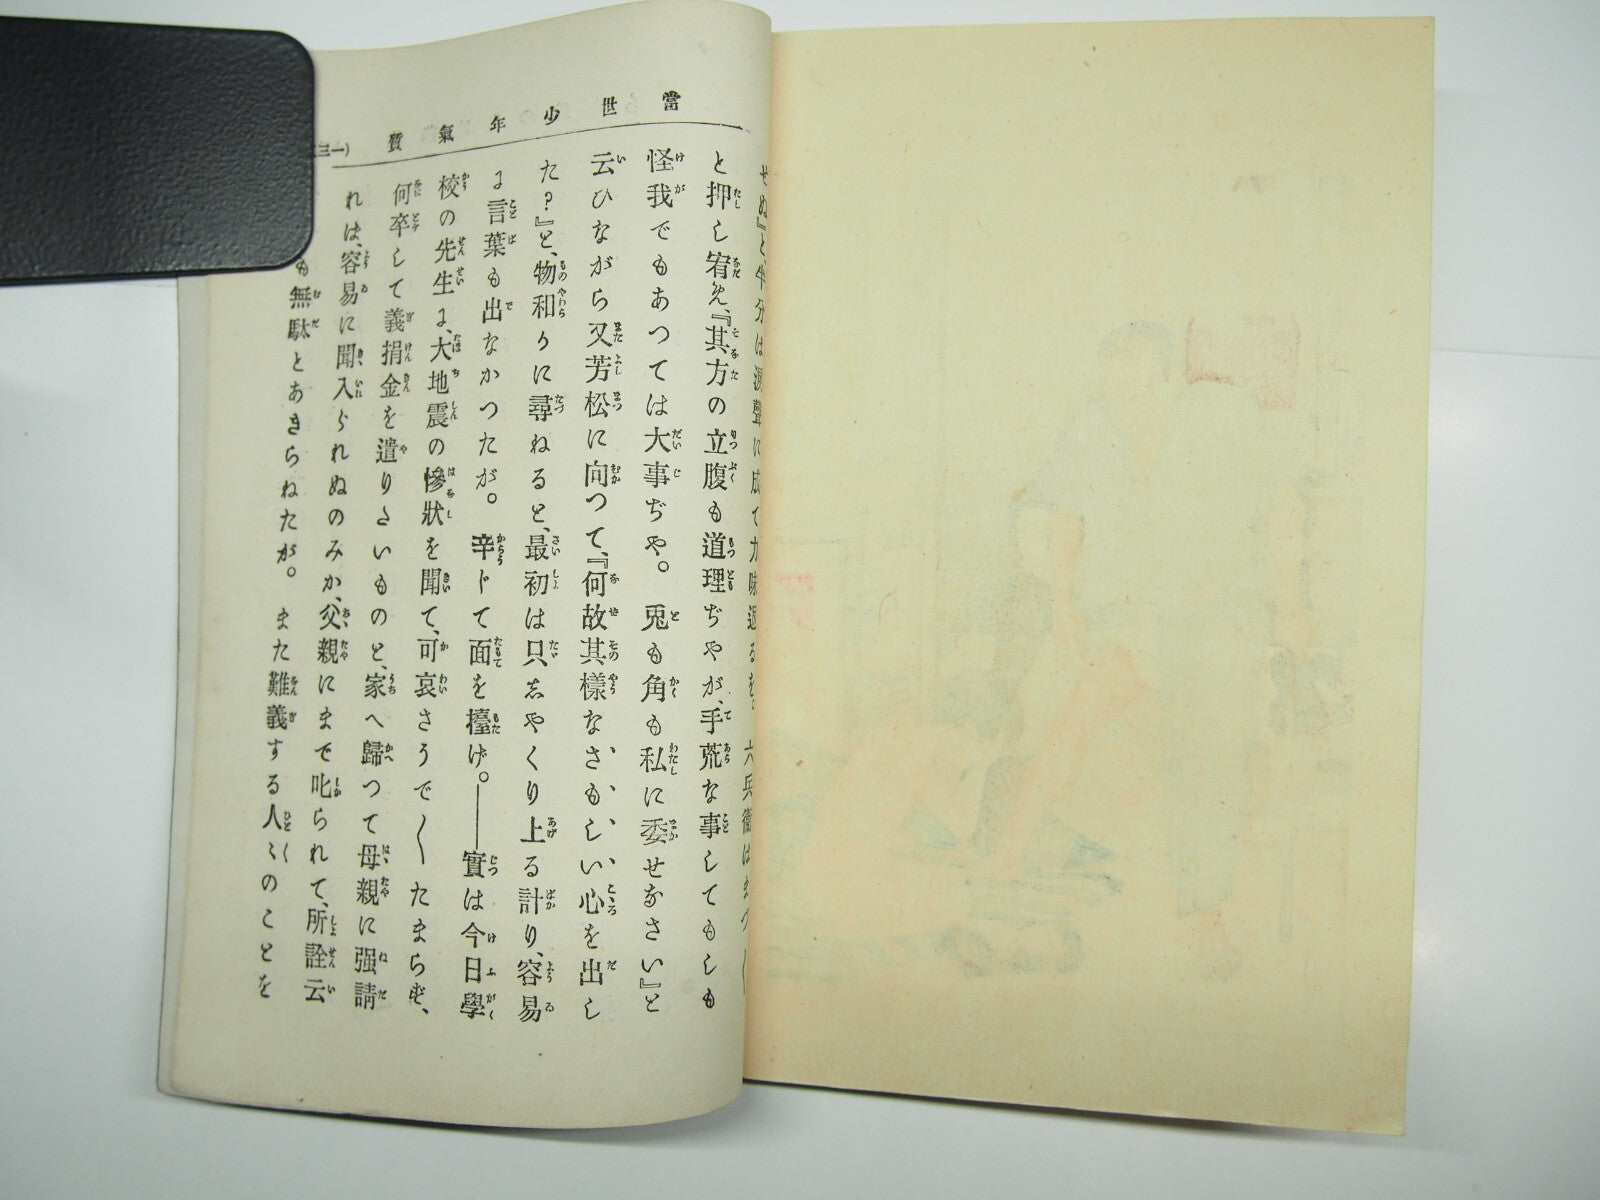 當世少年氣質
せぬ』と半分は涙聲に成て力味返るを。六兵衞はまづ〱
と押し宥め、『其方の立腹も道理ぢやが、手荒な事してもしも
怪我でもあつては大事ぢや。兎も角も私に委せなさい』と
云ひながら又芳松に向つて、『何故其樣なさもしい心を出し
た?』と、物和りに尋ねると、最初は只志やくり上る計り、容易
に言葉も出なかつたが。辛じて面を擡げ。――實は今日學
校の先生に、大地震の慘狀を聞て、可哀さうで〱たまらず、
何卒して義捐金を遣りたいものと、家へ歸つて母親に强請
れは、容易に聞入られぬのみか、父親にまで叱られて、所詮云
も無駄とあきらねたが。また難義する人〻のことを